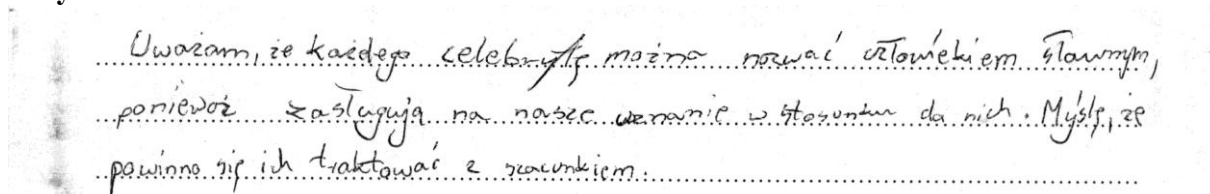 Uważam, że każdego celebrytę można nazwać człowiekiem sławnym,
ponieważ zasługują na nasze uznanie w stosunku do nich. Myślę, że
powinno się ich traktować z szacunkiem.